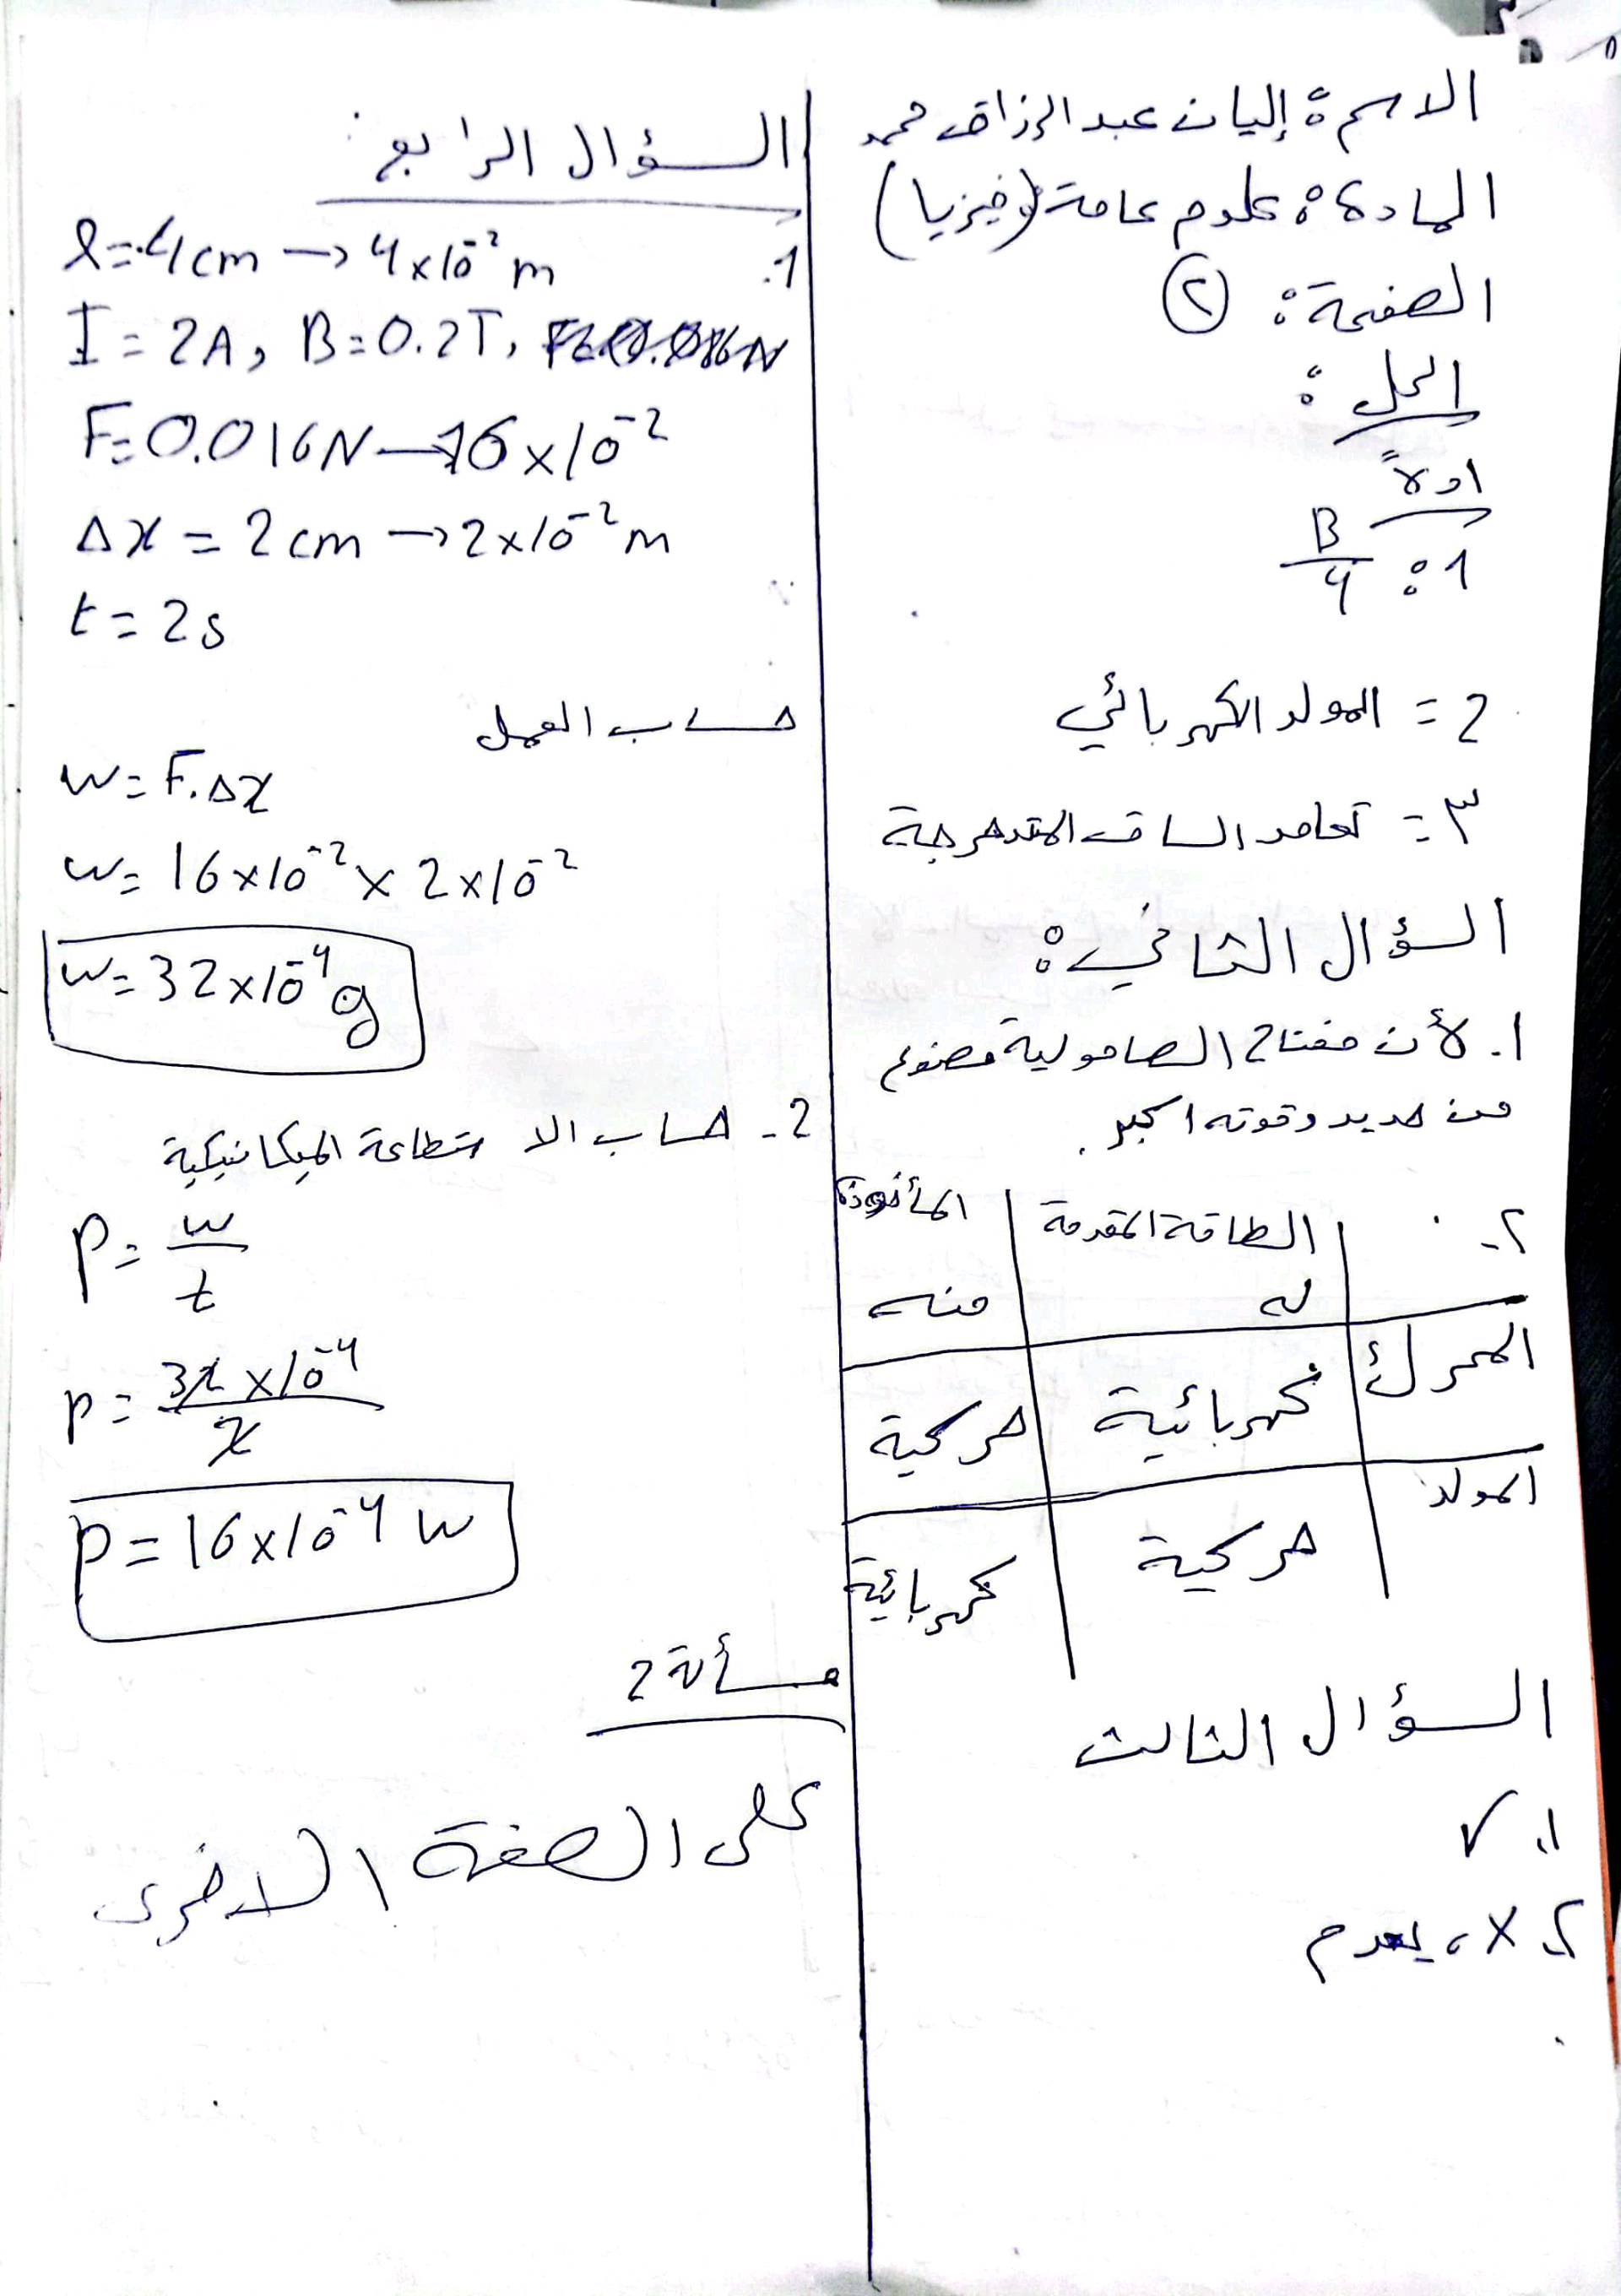 الاسم: إليان عبد الرزاق محمد
المادة: علوم عامة (فيزيا)
الصفحة: ٢
الحل:
اولاً
1: B/4
2 = المولد الكهربائي
٣ = تعامد الساق المتدحرجة
السؤال الثاني:
١. لأن مفتاح الصامولية مصنوع
من حديد وقوته اكبر.
٢- الطاقة المقدمة المأخوذة
له منه
المحرك كهربائية حركية
المولد حركية كهربائية
السؤال الثالث
١. ✓
٢. X، يعدم
السؤال الرابع:
1. l = 4cm → 4×10⁻² m
I = 2A, B = 0.2T,
F = 0.016N → 16×10⁻²
Δx = 2cm → 2×10⁻² m
t = 2s
حساب العمل
w = F.Δx
w = 16×10⁻² × 2×10⁻²
w = 32×10⁻⁴ g
2- حساب الاستطاعة الميكانيكية
P = w/t
P = 32×10⁻⁴/2
P = 16×10⁻⁴ w
مسألة 2
على الصفة الاخرى